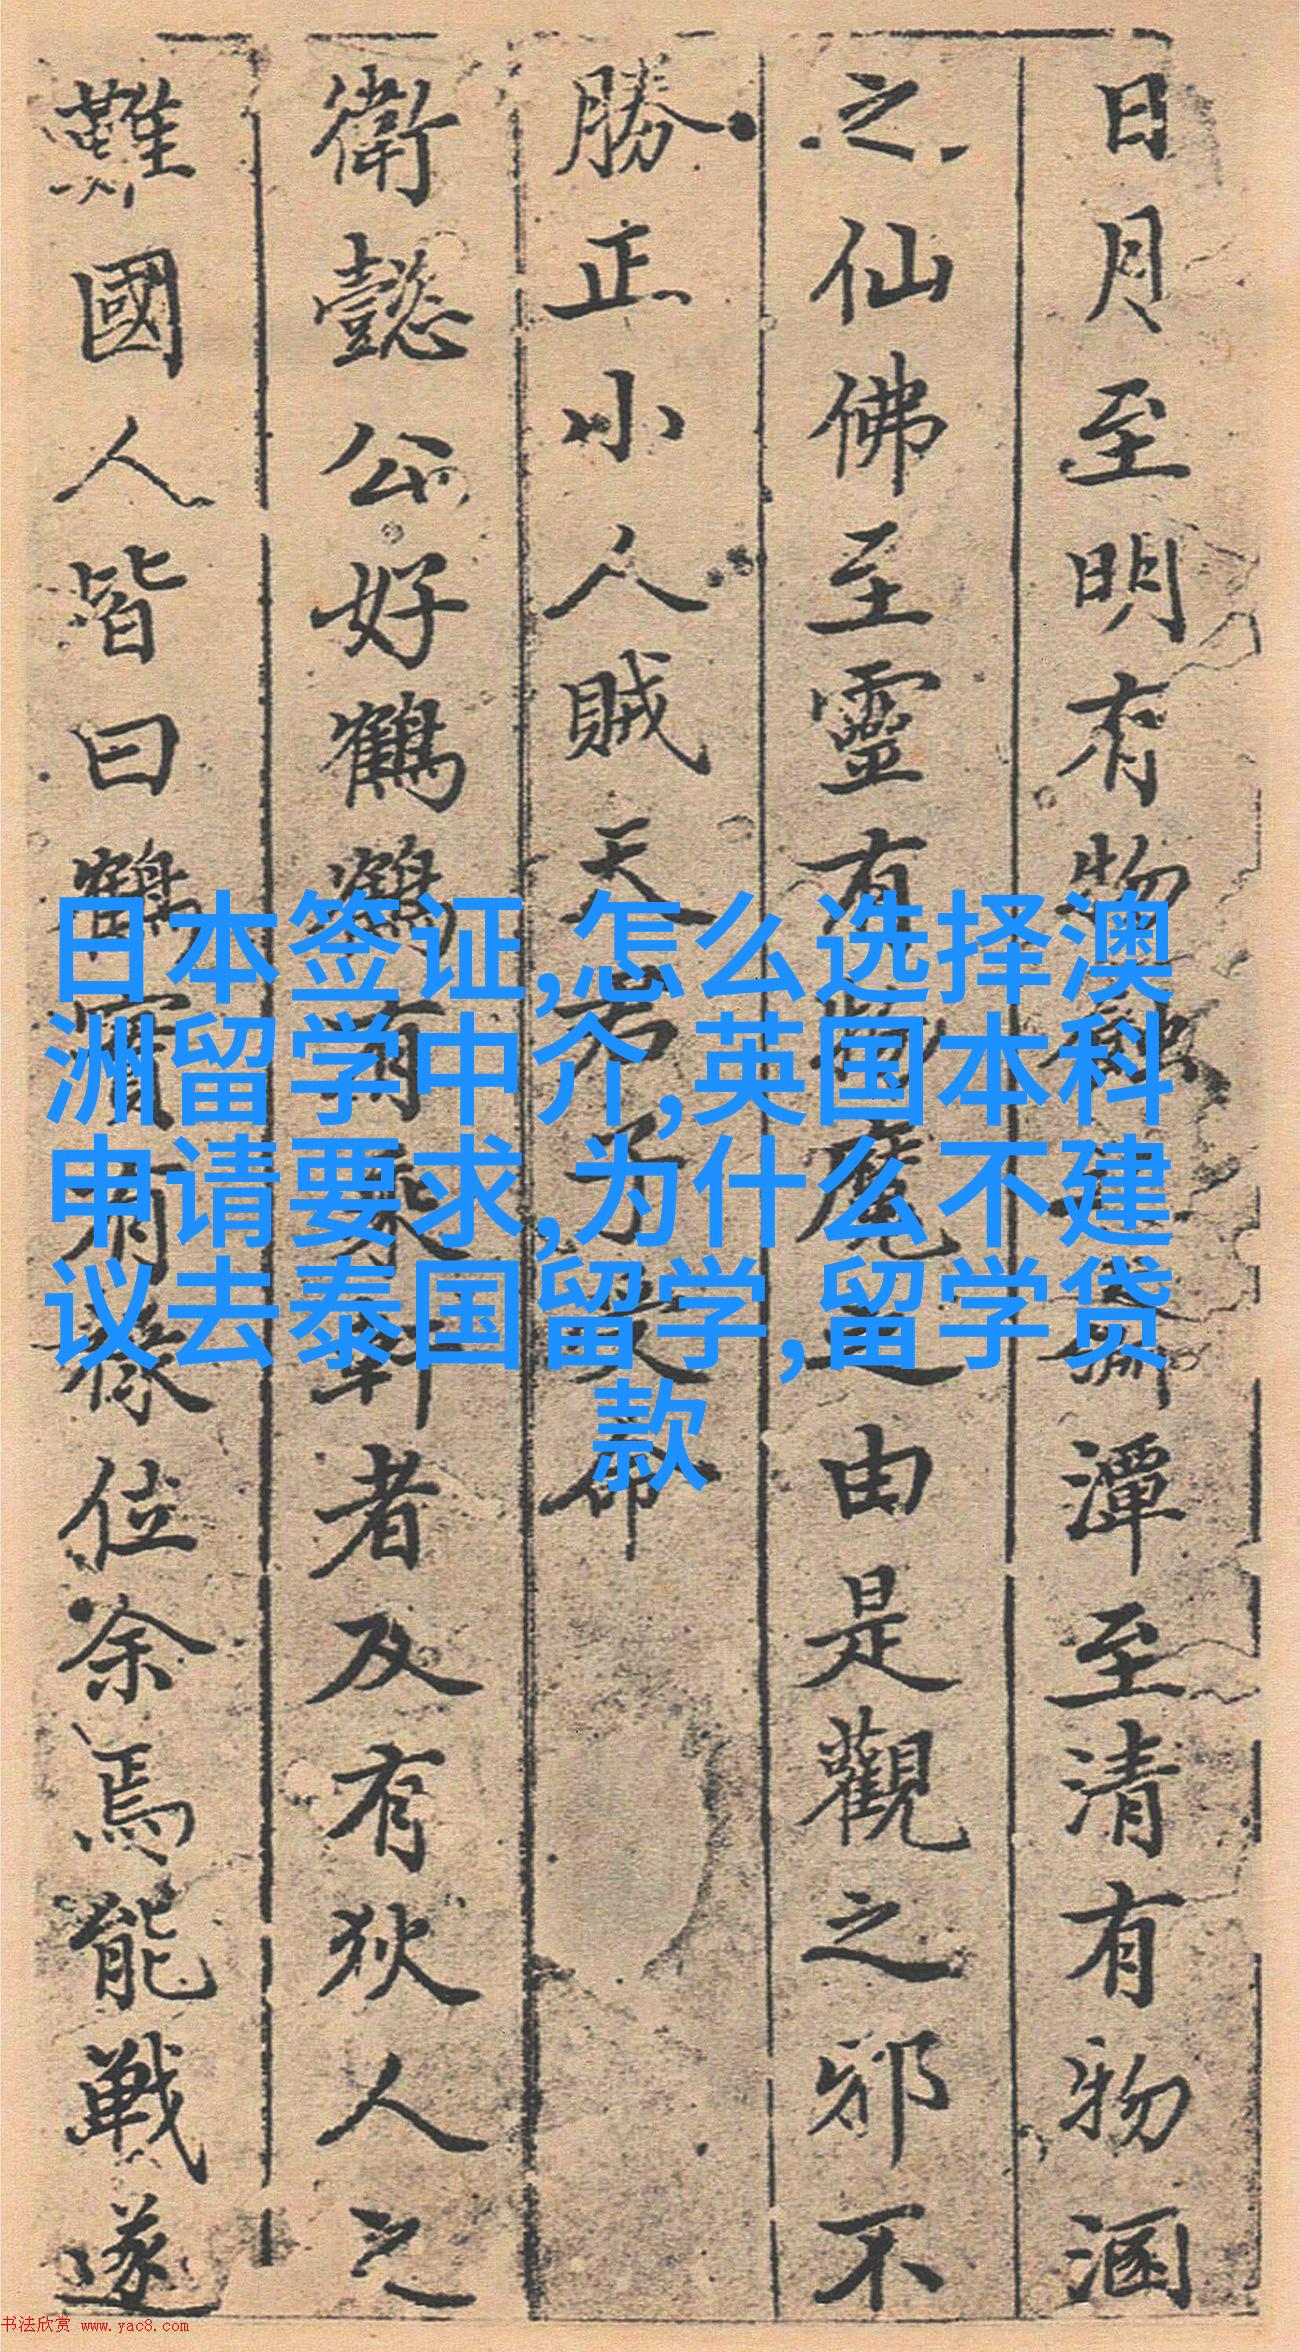 日月至明有物蝕潭至清有物涵
之仙佛至靈有物魔之由是觀之邪不
勝正小人賊天君子命
衛懿公好鶴鶴有乘軒者及有狄人之
難國人皆曰鶴實有祿位余焉能戰遂
日本签证,怎么选择澳
洲留学中介,英国本科
申请要求,为什么不建
议去泰国留学,留学贷
款
书法欣赏 www.yac8.com